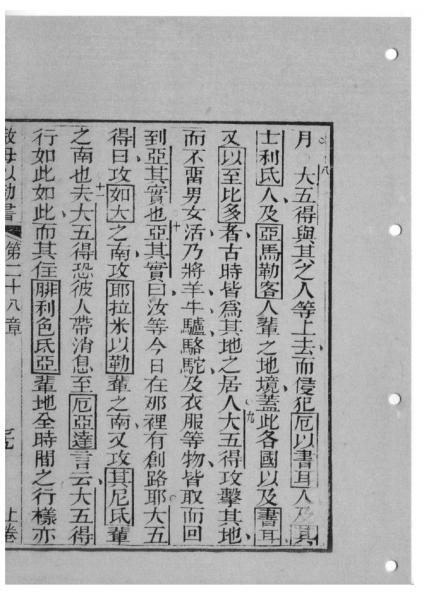 月八大五得與其之人等上去而侵犯厄以書耳人及其
士利氏人及亞馬勒客人輩之地境蓋此各國以及書耳
又以至比多者古時皆爲其地之居人九大五得攻擊其地
而不畱男女活乃將羊牛驢駱駝及衣服等物皆取而回
到亞其實也十亞其實曰汝等今日在那裡有創路耶大五
得曰攻如大之南攻耶拉米以勒輩之南又攻其尼氏輩
之南也十夫大五得恐彼人帶消息至厄亞達言云大五得
行如此如此而其住腓利色氏亞輩地全時間之行樣亦
撒母以勒書 第二十八章 上卷